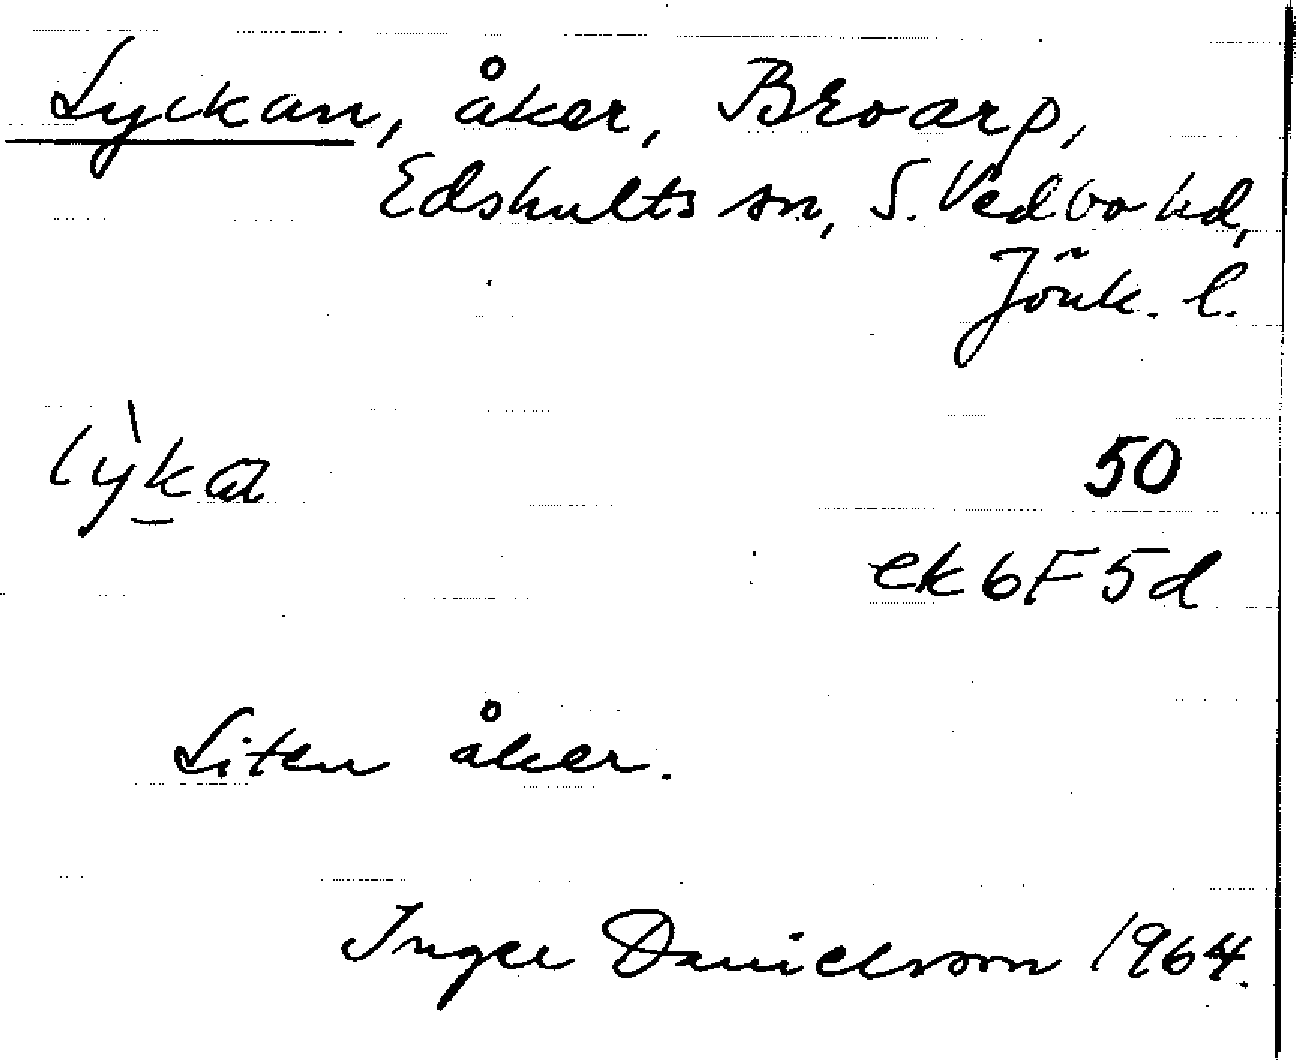 Lyckan, åker, Broarp,
Edshults sn, S. Vedbo hd,
Jönk. l.
lỳka 50
ek 6F5d
Liten åker.
Inger Danielsson 1964.